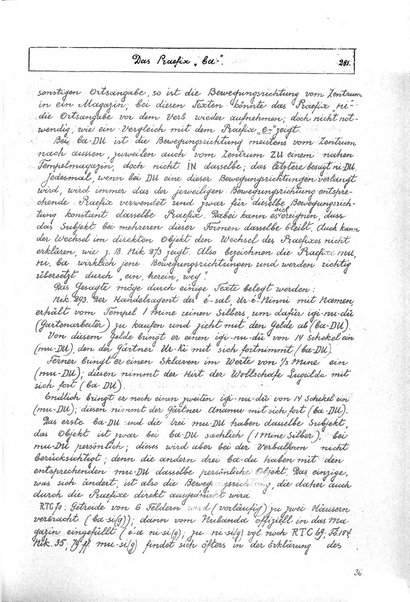 Das Praefix „ba-".
281.
sonstigen Ortsangabe, so ist die Bewegungsrichtung vom Zentrum
in ein Magazin; bei diesen Texten könnte das Praefix „ni-
die Ortsangabe vor dem Verb wieder aufnehmen; doch nicht not-
wendig, wie ein Vergleich mit dem Praefix „e-" zeigt.
Bei ba-DU ist die Bewegungsrichtung meistens vom Zentrum
nach aussen, zuweilen auch vom Zentrum ZU einem nahen
Tempelmagazin, doch nicht IN dasselbe; das letztere besagt ni-DU.
Jedesmal, wenn bei DU eine dieser Bewegungsrichtungen verlangt
wird, wird immer das der jeweiligen Bewegungsrichtung entspre-
chende Praefix verwendet und zwar für dieselbe Bewegungsrich-
tung konstant dasselbe Praefix. Dabei kann es sich ereignen, dass
das Subjekt bei mehreren dieser Formen dasselbe bleibt. Auch kann
der Wechsel im direkten Objekt den Wechsel des Praefixes nicht
erklären, wie z. B. Nik 293 zeigt. Also bezeichnen die Praefixe mu,
ni, ba wirklich jene Bewegungsrichtungen und werden richtig
übersetzt durch „ein, herein, weg".
Das Gesagte möge durch einige Texte belegt werden:
Nik 293. Der Handelsagent des é-sal, Ur-é-Ninni mit Namen,
erhält vom Tempel 1 Mine seinen Silbers, um dafür igi-nu-dú
(Gartenarbeiter) zu kaufen und zieht mit dem Gelde ab (ba-DU).
Von diesem Gelde bringt er einen igi-nu-dú von 14 Schekel ein
(mu-DU), den der Gärtner Ur-ki mit sich fortnimmt (ba-DU).
Ferner bringt er einen Sklaven im Werte von 1/3 Mine ein
(mu-DU); diesen nimmt der Hirt der Wollschafe Lugalda mit
sich fort (ba-DU).
Endlich bringt er noch einen zweiten igi-nu-dú von 14 Schekel ein
(mu-DU); diesen nimmt der Gärtner mit sich fort (ba-DU).
Das erste ba-DU und die drei mu-DU haben dasselbe Subjekt,
das Objekt ist zwar bei ba-DU sachlich (1 Mine Silber), bei
mu-DU persönlich; dies wird aber bei der Verbalform nicht
berücksichtigt; denn die andern drei ba-du haben mit den
entsprechenden mu-DU dasselbe persönliche Objekt. Das einzige,
was sich ändert, ist also die Bewegungsrichtung, die daher auch
durch die Praefixe direkt ausgedrückt wird.
RTC 70: Getreide von 6 Feldern wird (vorläufig) zu zwei Häusern
verbracht (ba-si(g)), dann vom Nubanda offiziell in das Ma-
gazin eingefüllt vgl. noch RTC 69,
Nik. 35, mu-si(g) findet sich öfters in der Erklärung des
36